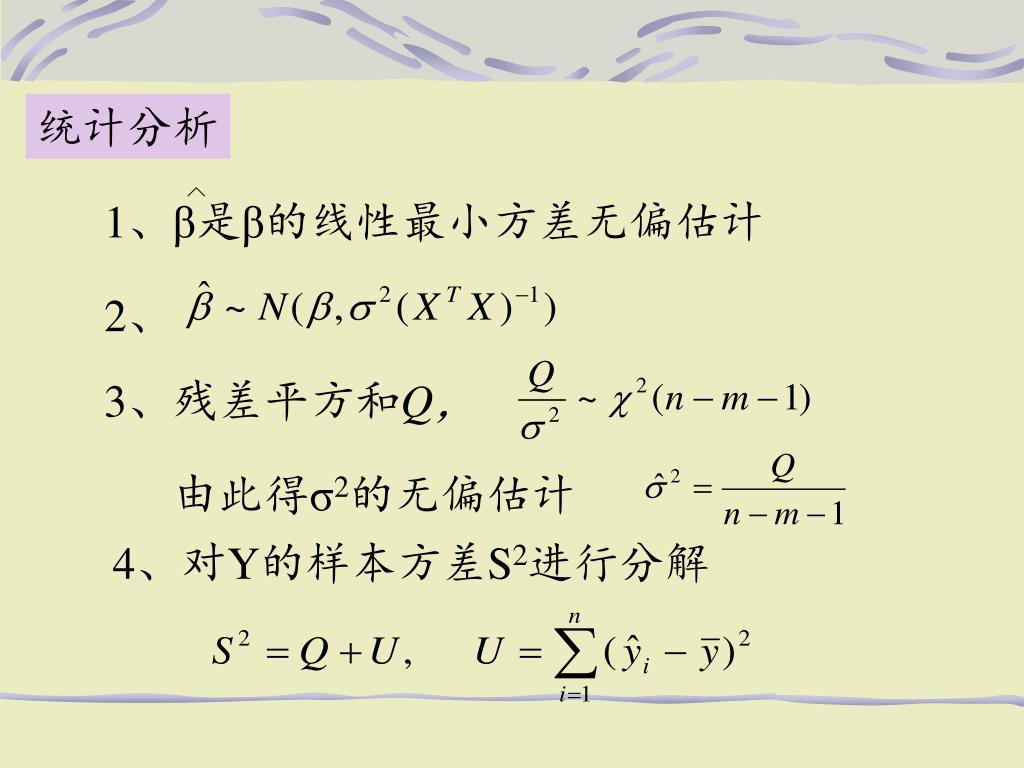 统计分析
1、β^是β的线性最小方差无偏估计
2、 β̂ ~ N(β,σ²(XᵀX)⁻¹)
3、残差平方和Q， Q/σ² ~ χ²(n−m−1)
由此得σ²的无偏估计 σ̂² = Q/(n−m−1)
4、对Y的样本方差S²进行分解
S² = Q + U, U = ∑ᵢ₌₁ⁿ (ŷᵢ − ȳ)²